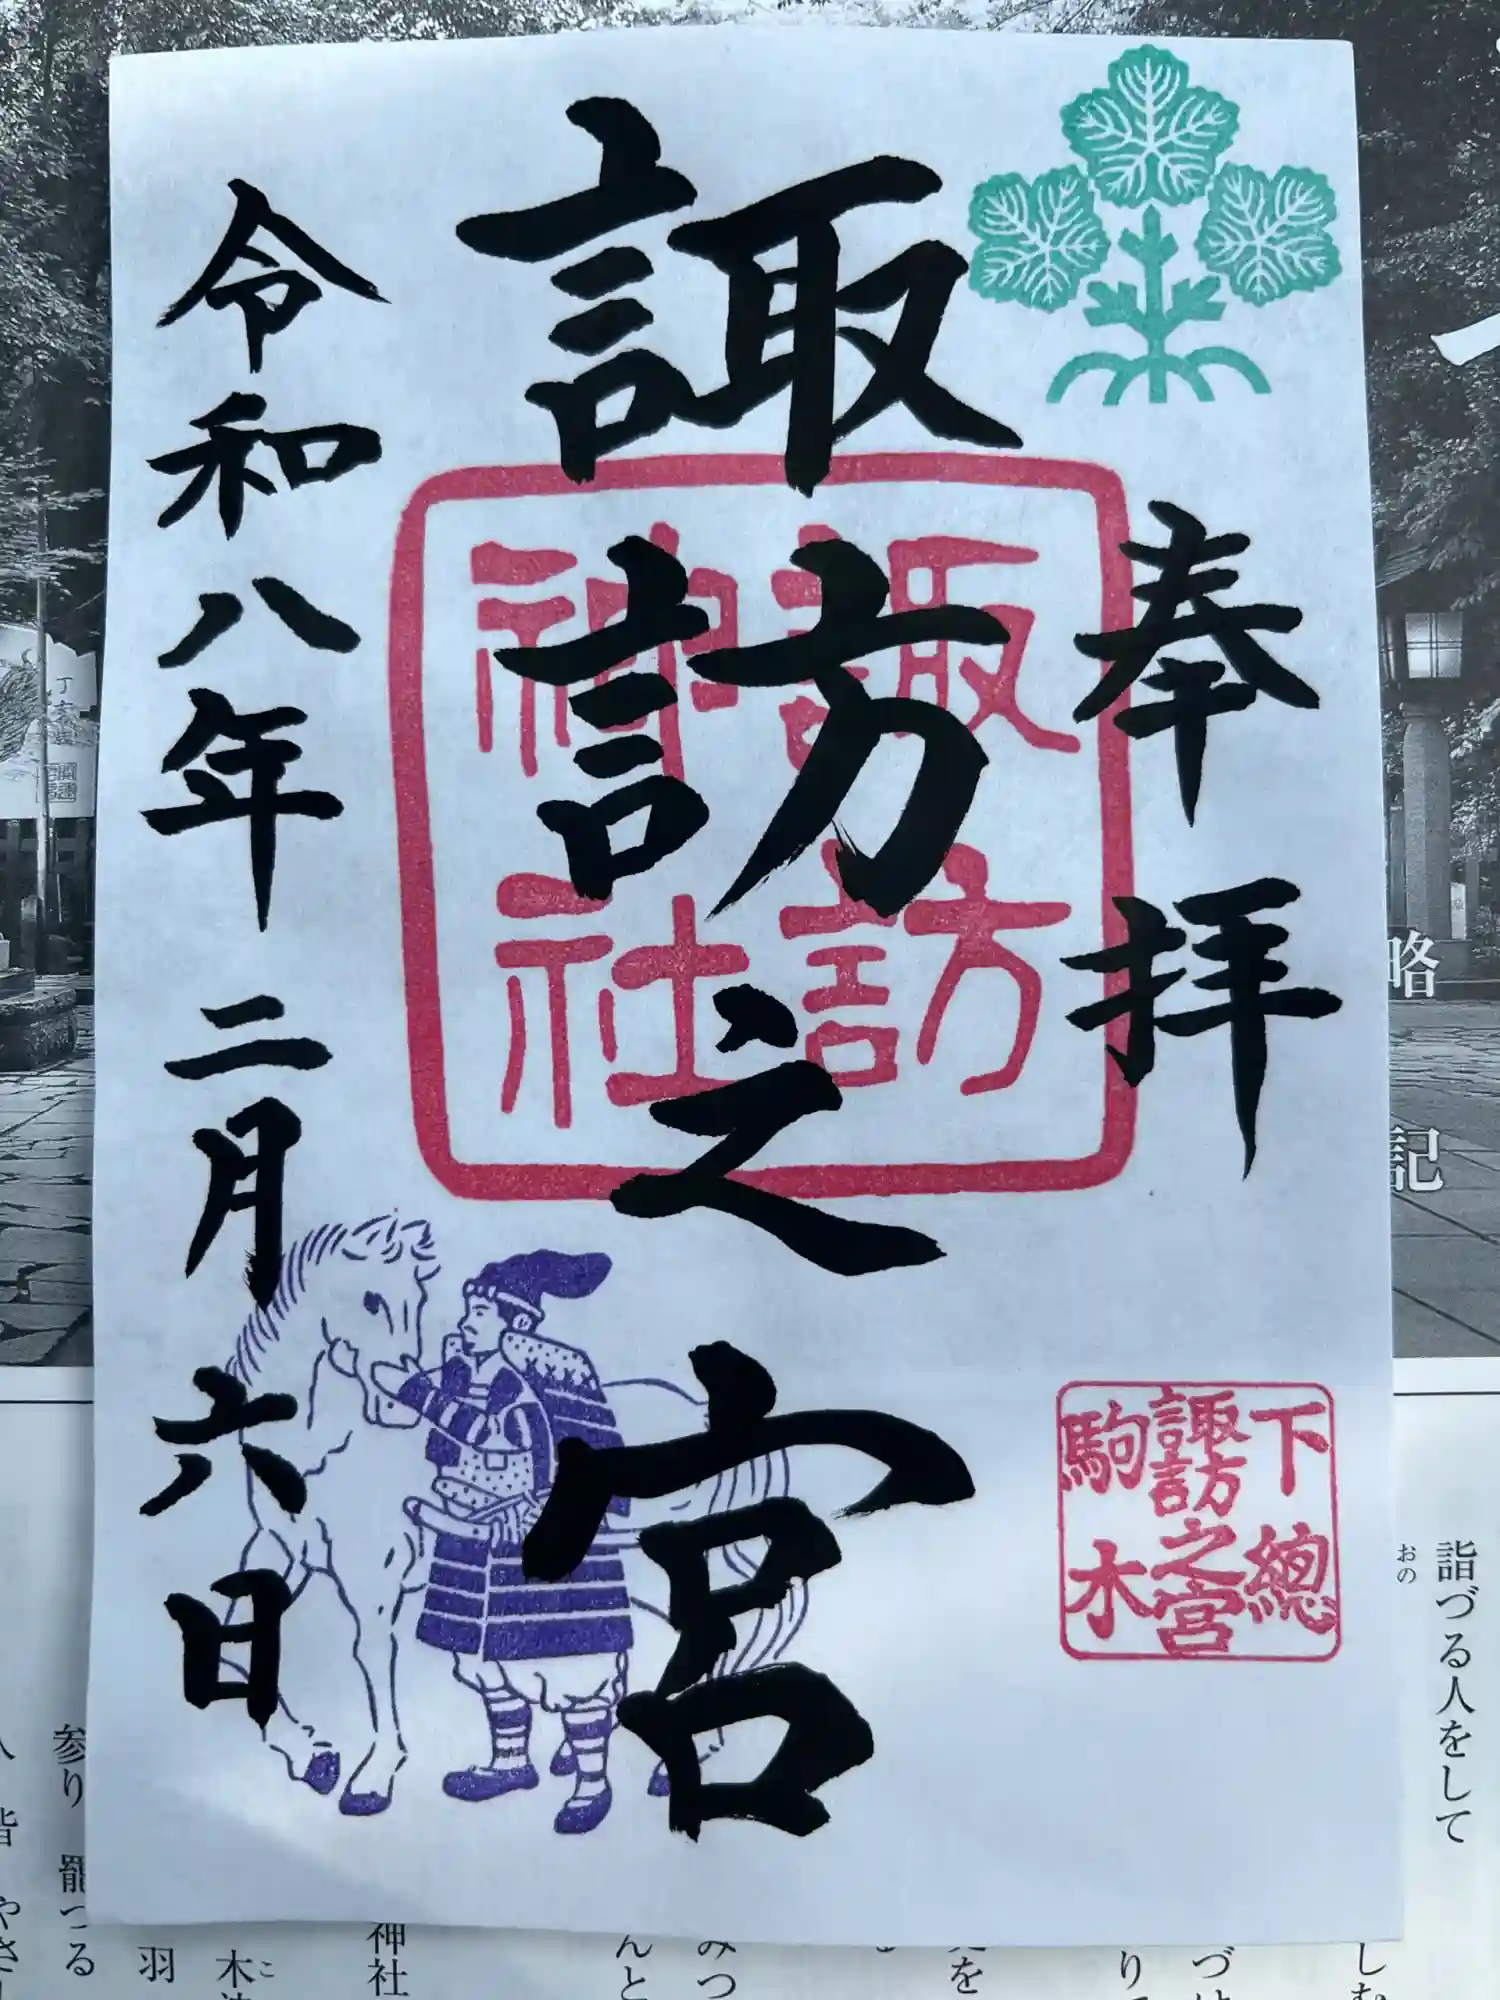 奉拝
諏訪之宮
令和八年二月六日
諏訪
神社
下總
諏訪之宮
駒木
略
記
詣づる人をして
おの
参り
罷づる
羽
木
こ
神社